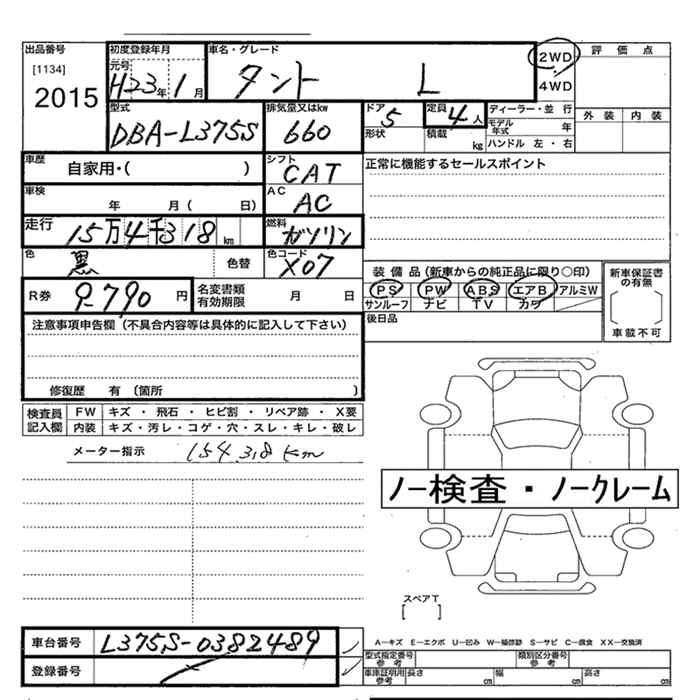 出品番号 初度登録年月 車名・グレード 2WD 評価点
[1134] 元号 4WD
2015 H23年1月 タント L
型式 排気量又はkw ドア 定員 ディーラー・並行 外装 内装
DBA-L375S 660 5 4人 モデル年式 年
形状 積載 kg ハンドル 左・右
車歴 自家用・( ) シフト CAT 正常に機能するセールスポイント
車検 年 月 ( 日) AC AC
走行 15万4千318km 燃料 ガソリン
色 黒 色替 色コード X07 装備品 (新車からの純正品に限り○印) 新車保証書の有無
R券 9790円 名変書類有効期限 月 日 PS PW ABS エアB アルミW
サンルーフ ナビ TV カワ
注意事項申告欄 (不具合内容等は具体的に記入して下さい) 後日品 車載不可
修復歴 有 〔箇所 〕
検査員記入欄 FW キズ・飛石・ヒビ割・リペア跡・X要
内装 キズ・汚レ・コゲ・穴・スレ・キレ・破レ
メーター指示 154,318km
ノー検査・ノークレーム
スペアT
[ ]
車台番号 L375S-0382489 A-キズ E-エクボ U-凹み W-補修跡 S-サビ C-腐食 XX-交換済
登録番号 型式指定番号 参考 類別区分番号 参考
車庫証明用参考 長さ cm 幅 cm 高さ cm